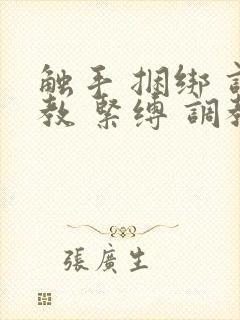 触手 捆绑
教 緊缚 調
張廣生